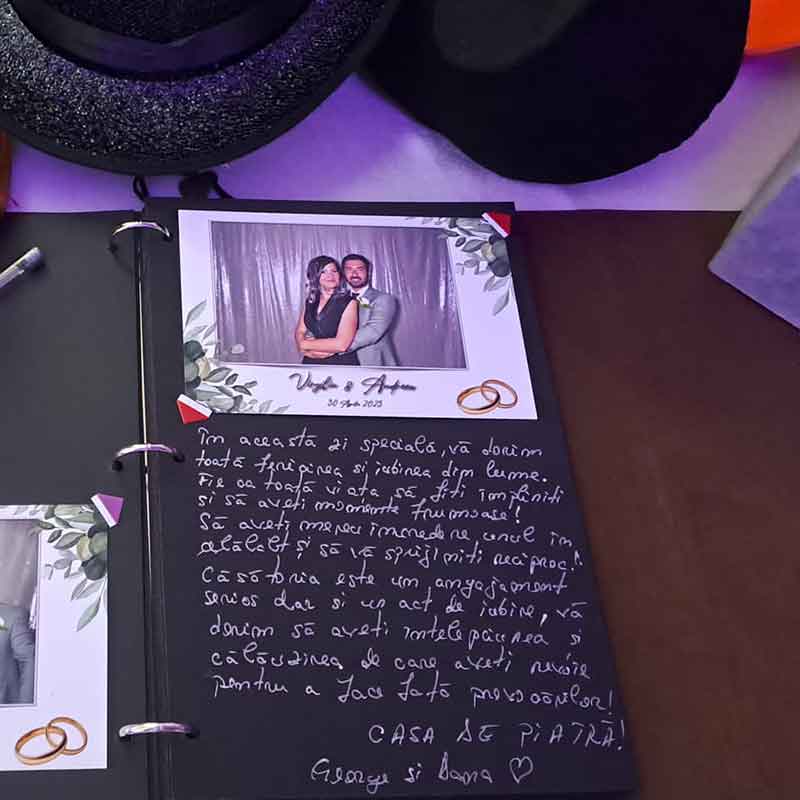 Virgiliu & Andreea
30 Aprilie 2023
În această zi specială, vă dorim
toată fericirea si iubirea din lume.
Fie ca toată viata să fiti împliniti
si să aveți momente frumoase!
Să aveți mereu încredere unul în
celălalt și să vă sprijiniti reciproc!
Căsătoria este un angajament
serios dar si un act de iubire, vă
dorim să aveti întelepciunea si
călăuzirea de care aveti nevoie
pentru a face față provocărilor!
CASA DE PIATRĂ!
George si Dana ♡